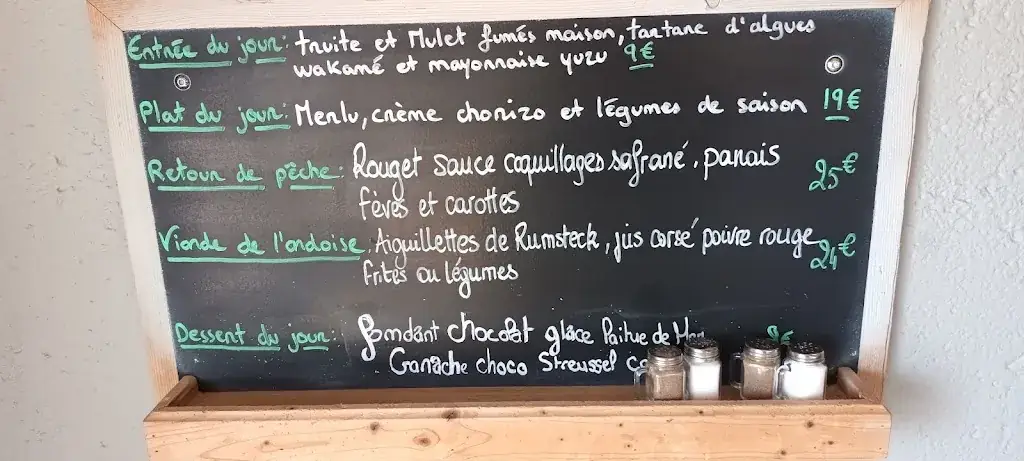 Entrée du jour: truite et Mulet fumés maison, tartare d'algues
wakamé et mayonnaise yuzu 9€
Plat du jour: Merlu, crème chorizo et légumes de saison 19€
Retour de pêche: Rouget sauce coquillages safrané, panais 25€
fèves et carottes
Viande de l'ardoise: Aiguillettes de Rumsteck, jus corsé poivre rouge 24€
frites ou légumes
Dessert du jour: Fondant chocolat glace Laitue de
Ganache choco Streussel